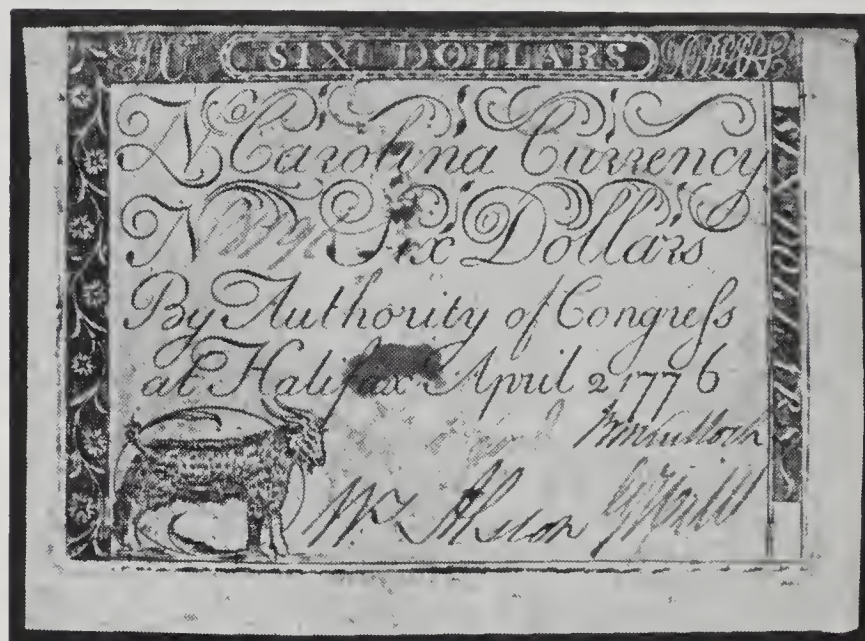 SIX DOLLARS
N Carolina Currency
N Six Dollars
By Authority of Congreſs
at Halifax April 2 1776
SIX DOLLARS
Wm Alston